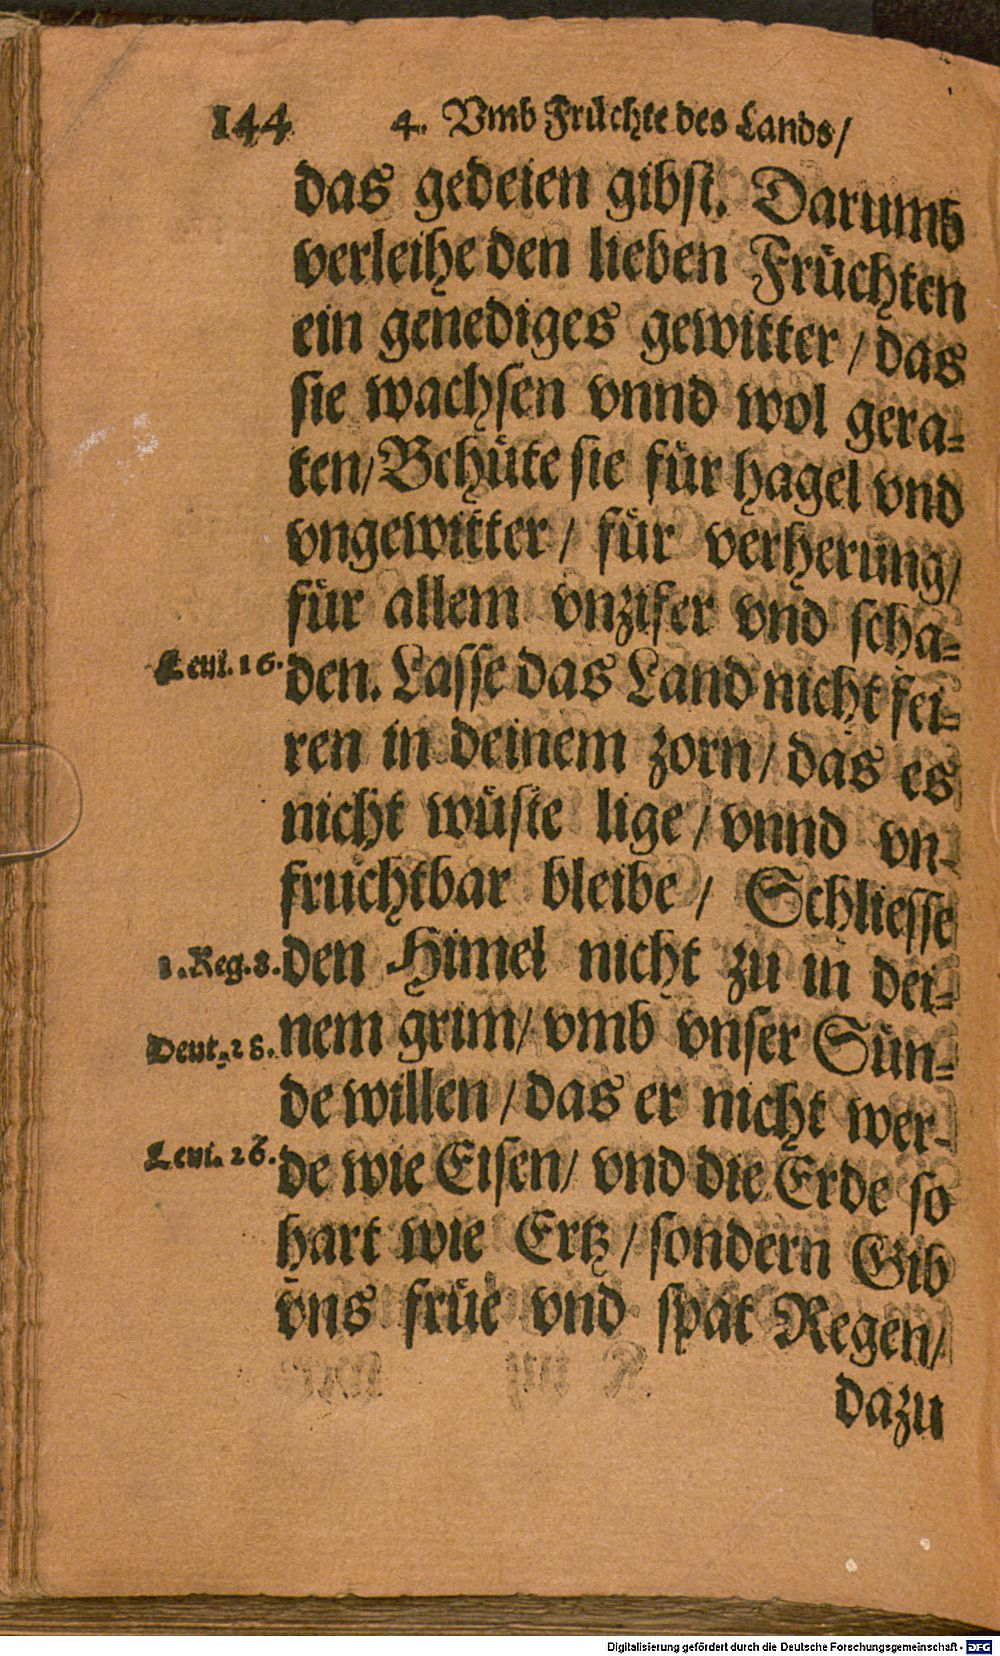 144 4. Vmb Früchte des Lands/
das gedeien gibst. Darumb
verleihe den lieben Früchten
ein genediges gewitter / das
sie wachsen vnnd wol gera-
ten/Behüte sie für hagel vnd
vngewitter / für verherung/
für allem vnzifer vnd scha-
Leui. 16. den. Lasse das Land nicht fei-
ren in deinem zorn / das es
nicht wüste lige / vnnd vn-
fruchtbar bleibe / Schliesse
1. Reg. 8. den Himel nicht zu in dei-
Deut. 28. nem grim/ vmb vnser Sün-
de willen / das er nicht wer-
Leui. 26. de wie Eisen/ vnd die Erde so
hart wie Ertz / sondern Gib
vns früe vnd spat Regen/
dazu
Digitalisierung gefördert durch die Deutsche Forschungsgemeinschaft - DFG